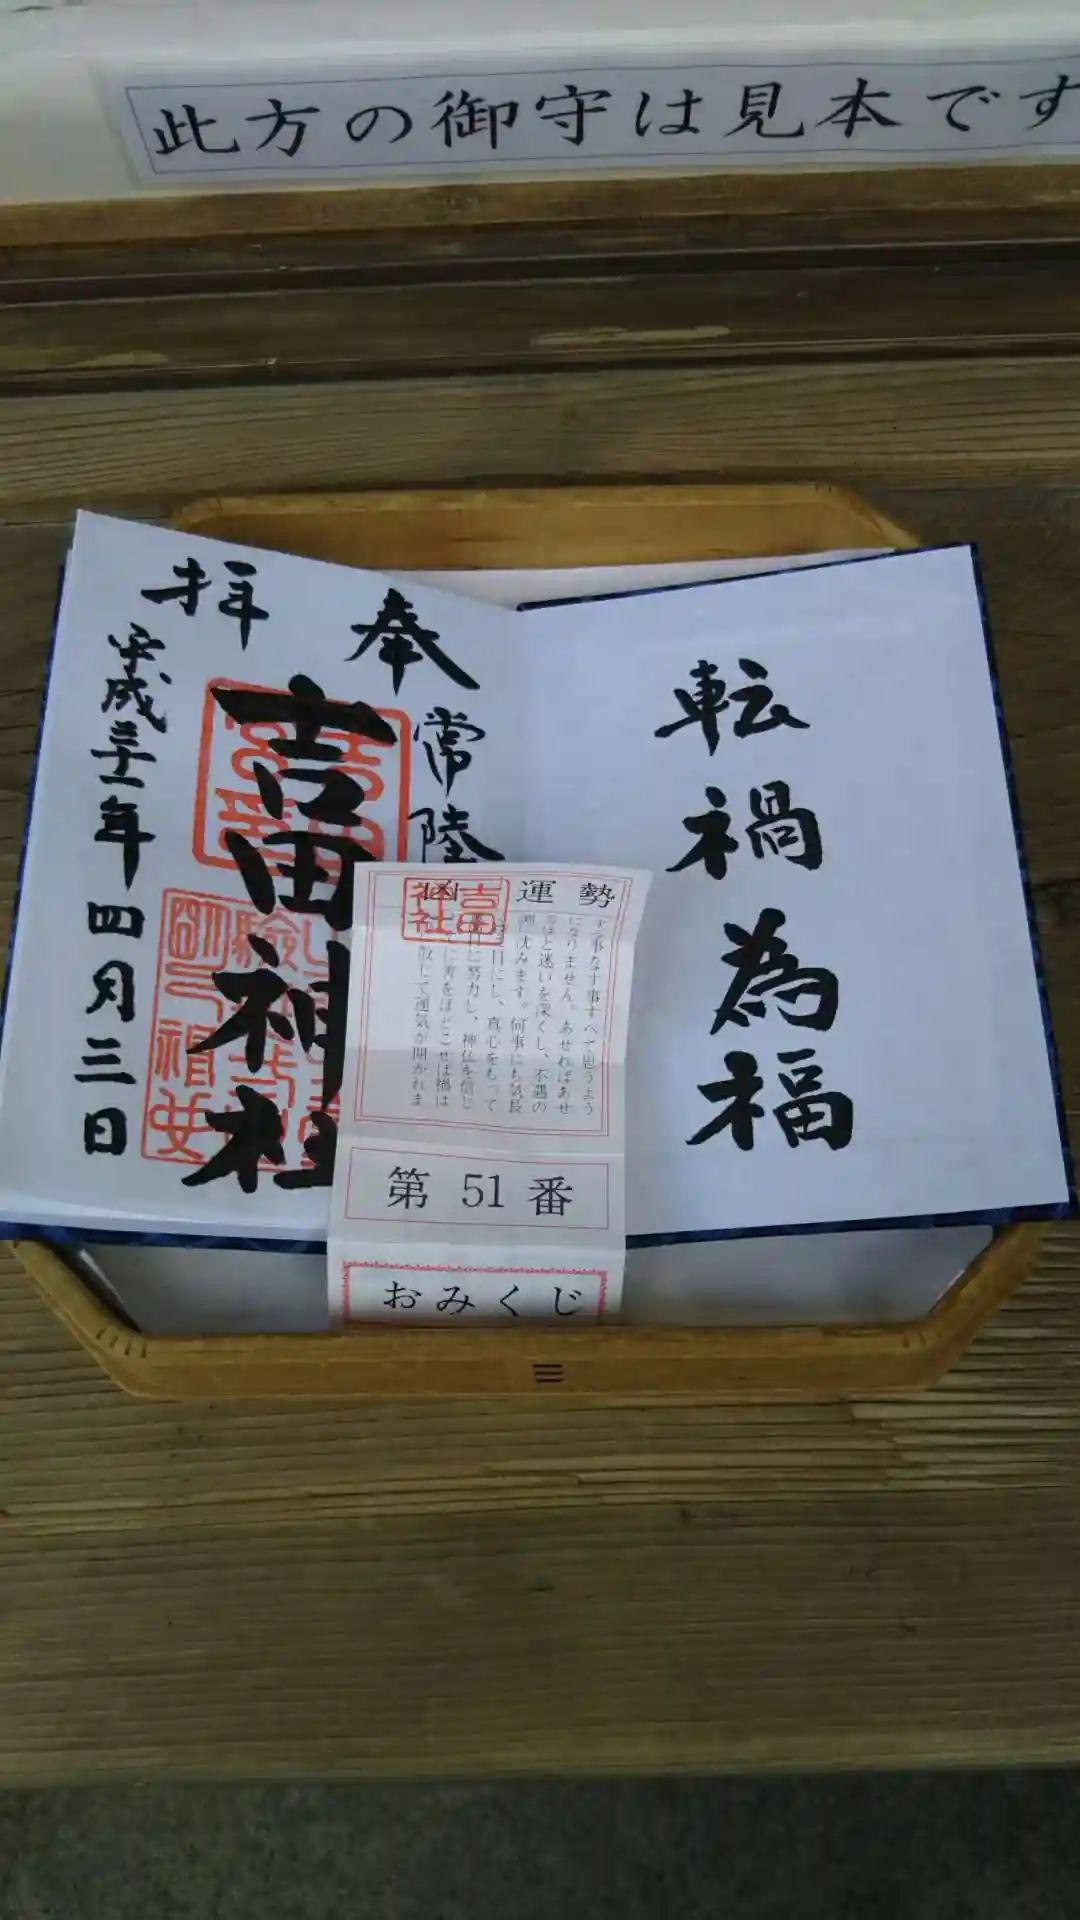 此方の御守は見本です
転禍為福
奉拝
常陸
吉田神社
平成三十一年四月三日
運勢
吉田神社
なす事すべて思うよう
になりません。あせればあせ
るほど迷いを深くし、不遇の
沈みます。何事にも気長
にし、真心をもって
に努力し、神仏を信じ
に善をほどこせば禍は
散じて運気が開かれま
第51番
おみくじ